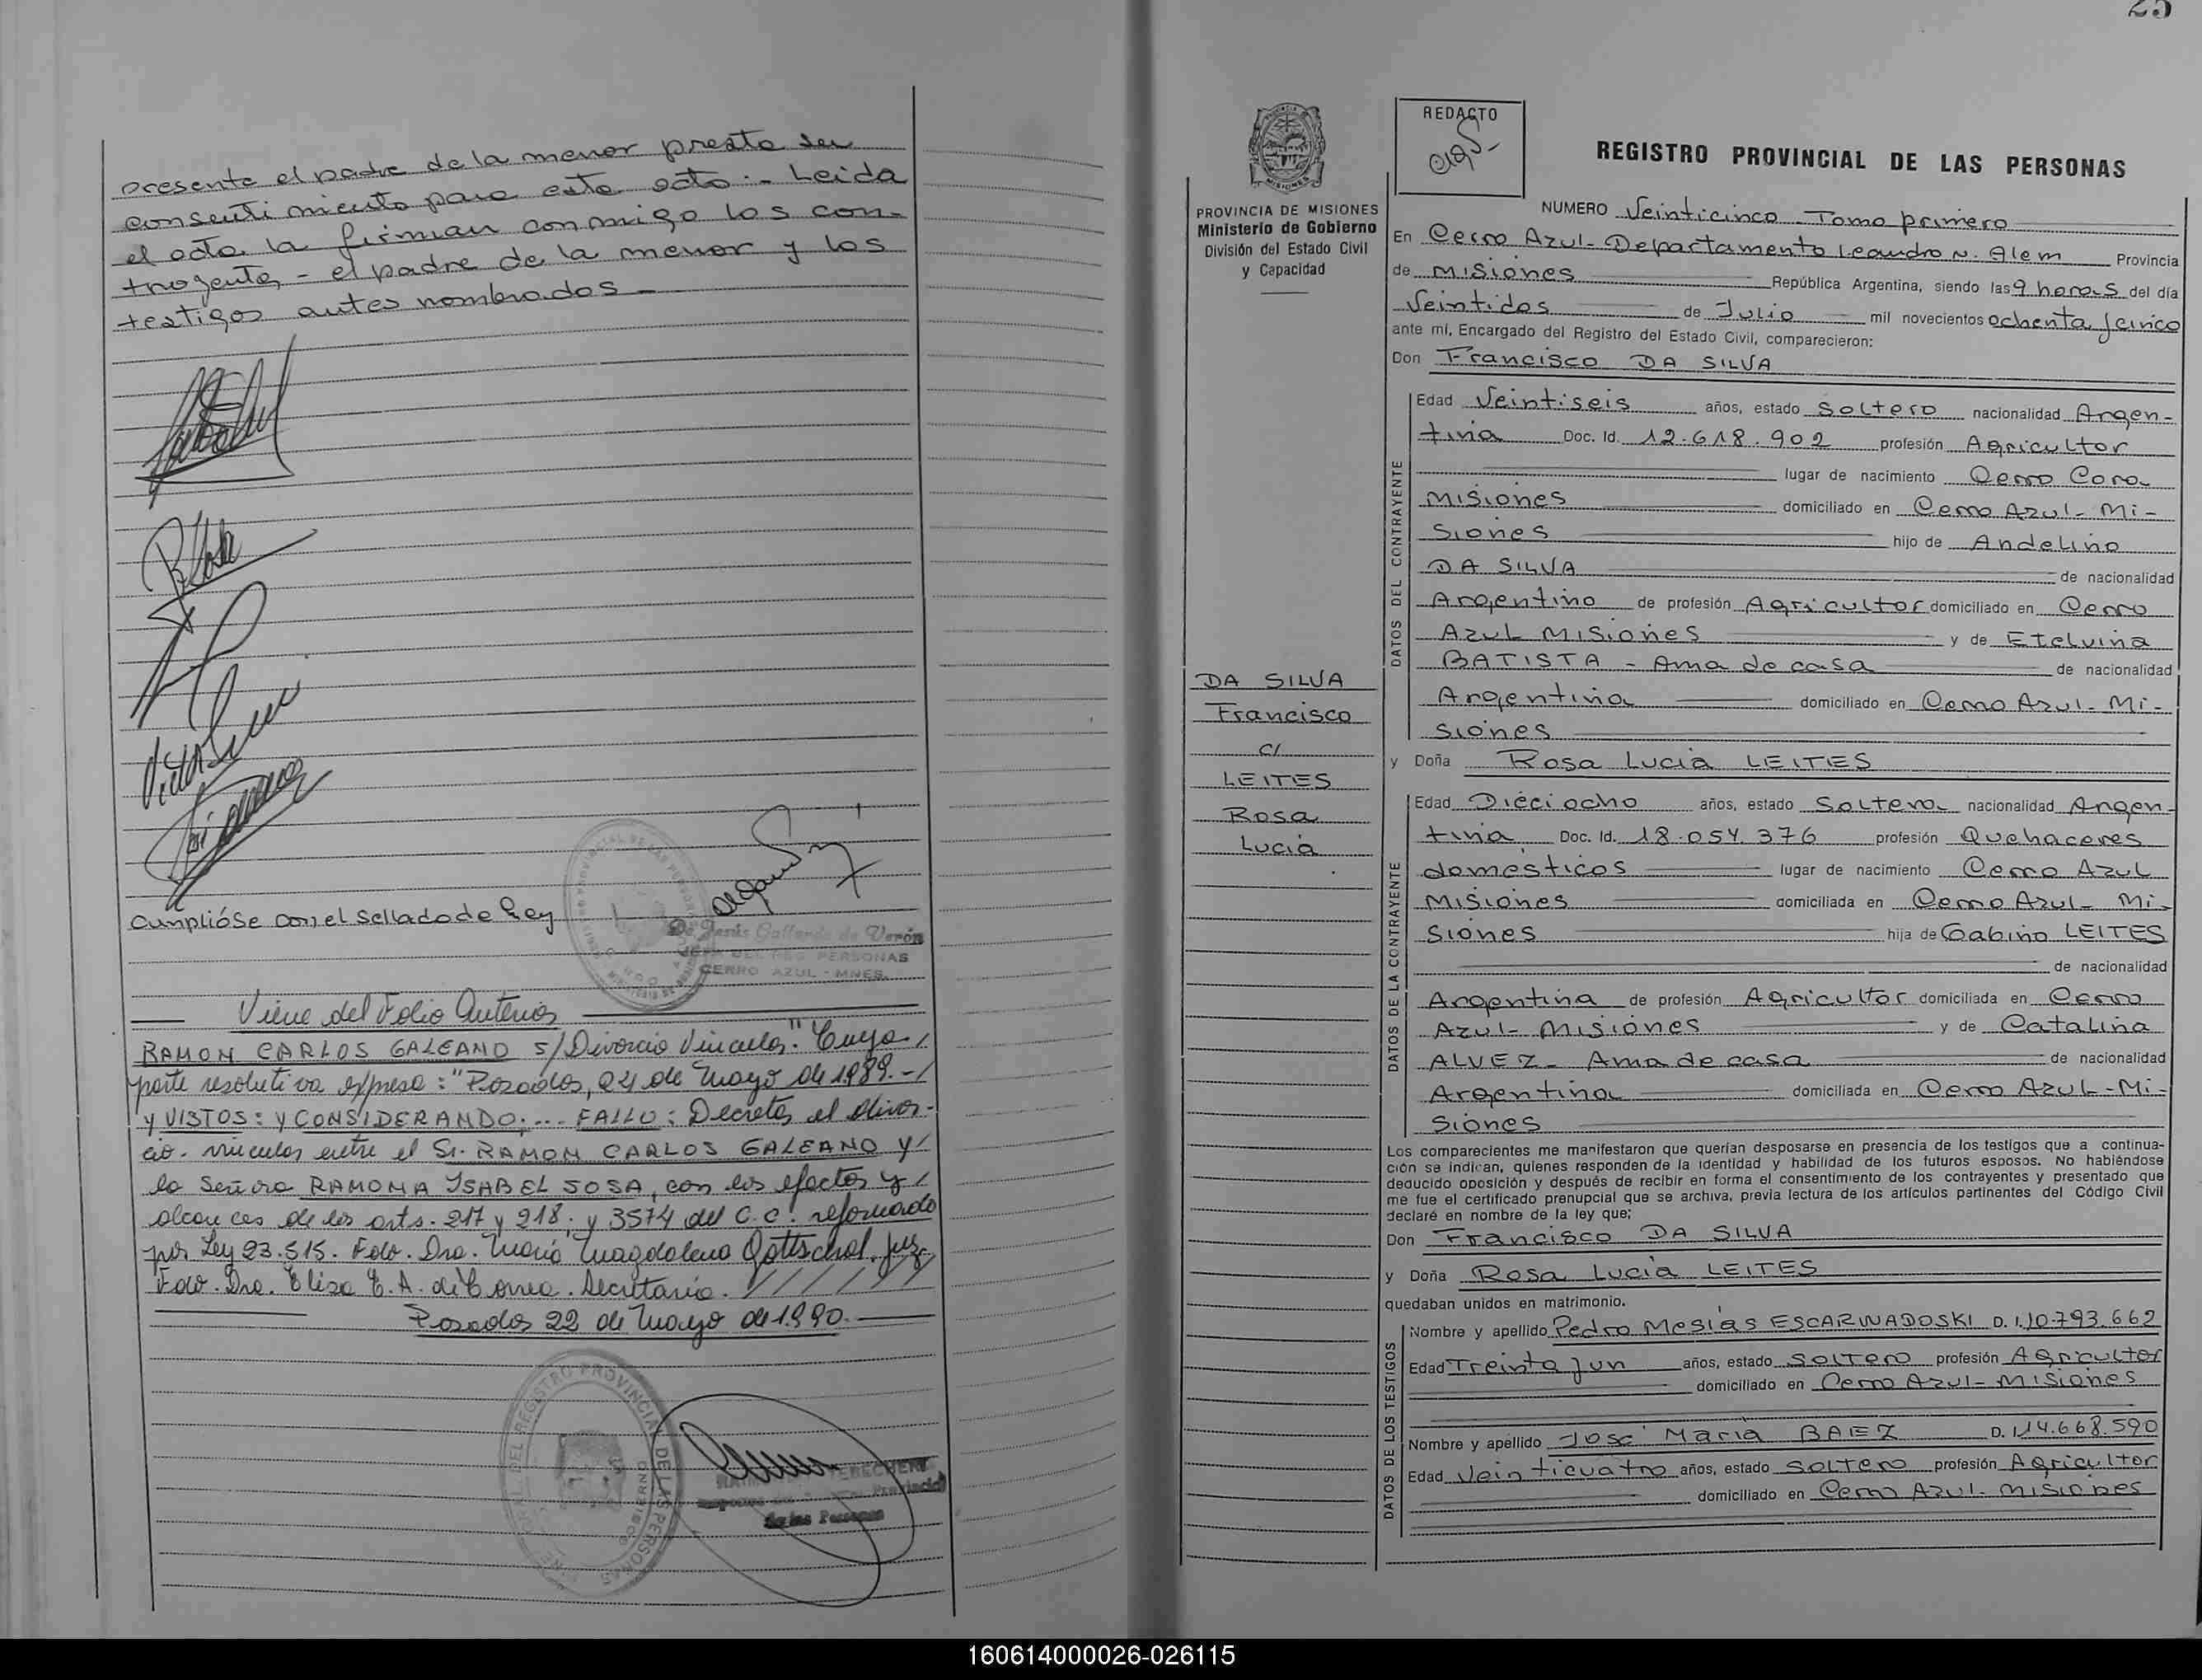 presente el padre de la menor presta su
consentimiento para este acto.- Leida
el acta la firman conmigo los con-
trayentes - el padre de la menor y los
testigos antes nombrados -
Cumplióse con el sellado de Ley
Jesús Gallardo de Verón
PERSONAS
CERRO AZUL - MNES.
Viene del Folio Anterior
RAMON CARLOS GALEANO S/Divorcio Vincular." Cuya /
parte resolutiva expresa: "Posadas, 24 de Mayo de 1989.- /
Y VISTOS: Y CONSIDERANDO: ... FALLO: Decretar el divor-
cio vincular entre el Sr. RAMON CARLOS GALEANO y /
la Señora RAMONA YSABEL SOSA, con los efectos y /
alcances de los arts. 217 y 218; y 3574 del C.C. reformado
por Ley 23.515. Fdo. Dra. María Magdalena Juez
Fdo. Dra. Elisa E. A. de Secretaria. / / / / / / /
Posadas 22 de Mayo de 1990.
REGISTRO PROVINCIAL DE LAS PERSONAS
de las Personas
25
REDACTO
PROVINCIA DE MISIONES
Ministerio de Gobierno
División del Estado Civil
y Capacidad
DA SILVA
Francisco
c/
LEITES
Rosa
Lucia
REGISTRO PROVINCIAL DE LAS PERSONAS
NUMERO Veinticinco - Tomo primero
En Cerro Azul - Departamento Leandro N. Alem Provincia
de Misiones República Argentina, siendo las 9 horas del día
Veintidos de Julio mil novecientos ochenta y cinco
ante mí, Encargado del Registro del Estado Civil, comparecieron:
Don Francisco DA SILVA
DATOS DEL CONTRAYENTE
Edad Veintiseis años, estado Soltero nacionalidad Argen-
tina Doc. Id. 12.618.902 profesión Agricultor
lugar de nacimiento Cerro Cora
Misiones domiciliado en Cerro Azul - Mi-
siones hijo de Andelino
DA SILVA de nacionalidad
Argentino de profesión Agricultor domiciliado en Cerro
Azul Misiones y de Etelvina
BATISTA - Ama de casa de nacionalidad
Argentina domiciliado en Cerro Azul - Mi-
siones
y Doña Rosa Lucia LEITES
DATOS DE LA CONTRAYENTE
Edad Dieciocho años, estado Soltera nacionalidad Argen-
tina Doc. Id. 18.054.376 profesión Quehaceres
domésticos lugar de nacimiento Cerro Azul
Misiones domiciliada en Cerro Azul - Mi-
siones hija de Gabino LEITES
de nacionalidad
Argentina de profesión Agricultor domiciliada en Cerro
Azul - Misiones y de Catalina
ALVEZ - Ama de casa de nacionalidad
Argentina domiciliada en Cerro Azul - Mi-
siones
Los comparecientes me manifestaron que querían desposarse en presencia de los testigos que a continua-
ción se indican, quienes responden de la identidad y habilidad de los futuros esposos. No habiéndose
deducido oposición y después de recibir en forma el consentimiento de los contrayentes y presentado que
me fue el certificado prenupcial que se archiva, previa lectura de los artículos pertinentes del Código Civil
declaré en nombre de la ley que;
Don Francisco DA SILVA
y Doña Rosa Lucia LEITES
quedaban unidos en matrimonio.
DATOS DE LOS TESTIGOS
Nombre y apellido Pedro Mesías ESCARWADOSKI D.I. 10.793.662
Edad Treinta y un años, estado soltero profesión Agricultor
domiciliado en Cerro Azul - Misiones
Nombre y apellido José María BAEZ D.I. 14.668.590
Edad Veinticuatro años, estado soltero profesión Agricultor
domiciliado en Cerro Azul - Misiones
160614000026-026115